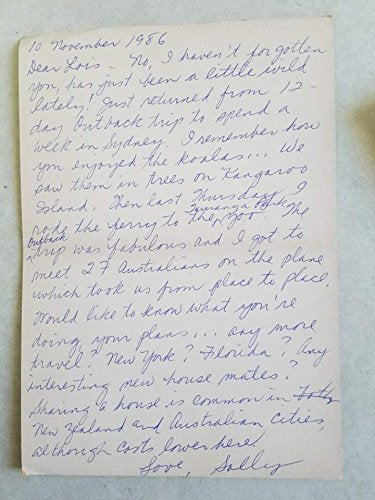 10 November 1986
Dear Lois - No, I haven't forgotten
you, has just been a little wild
lately! Just returned from 12-
day Outback trip to spend a
week in Sydney. I remember how
you enjoyed the koalas... We
saw them in trees on Kangaroo
Island. Then last Thursday I
rode the ferry to the Taronga Park Zoo. The
Outback trip was fabulous and I got to
meet 27 Australians on the plane
which took us from place to place.
Would like to know what you're
doing, your plans... any more
travel? New York? Florida? Any
interesting new house mates?
Sharing a house is common in
New Zealand and Australian Cities,
although costs lower here!
Love, Sally